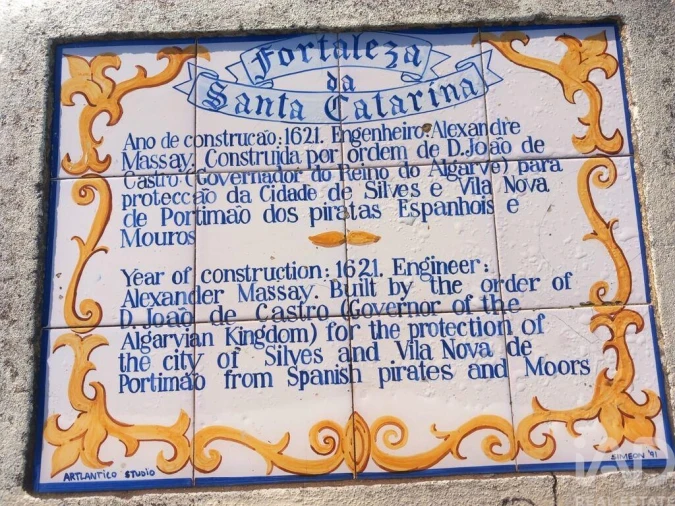 Fortaleza
da
Santa Catarina
Ano de construcão: 1621. Engenheiro: Alexandre
Massay. Construida por ordem de D. João de
Castro (Governador do Reino do Algarve) para
protecção da Cidade de Silves e Vila Nova
de Portimão dos piratas Espanhois e
Mouros
Year of construction: 1621. Engineer:
Alexander Massay. Built by the order of
D. João de Castro (Governor of the
Algarvian Kingdom) for the protection of
the city of Silves and Vila Nova de
Portimão from Spanish pirates and Moors
ARTLANTICO STUDIO
SIMEON '91
iAD
REAL ESTATE